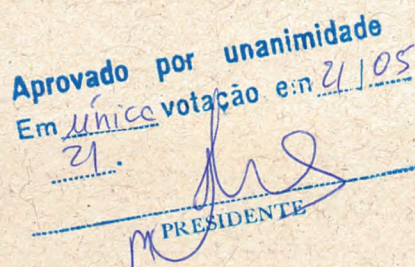 Aprovado por unanimidade
Em única votação em 21/05
21.
PRESIDENTE